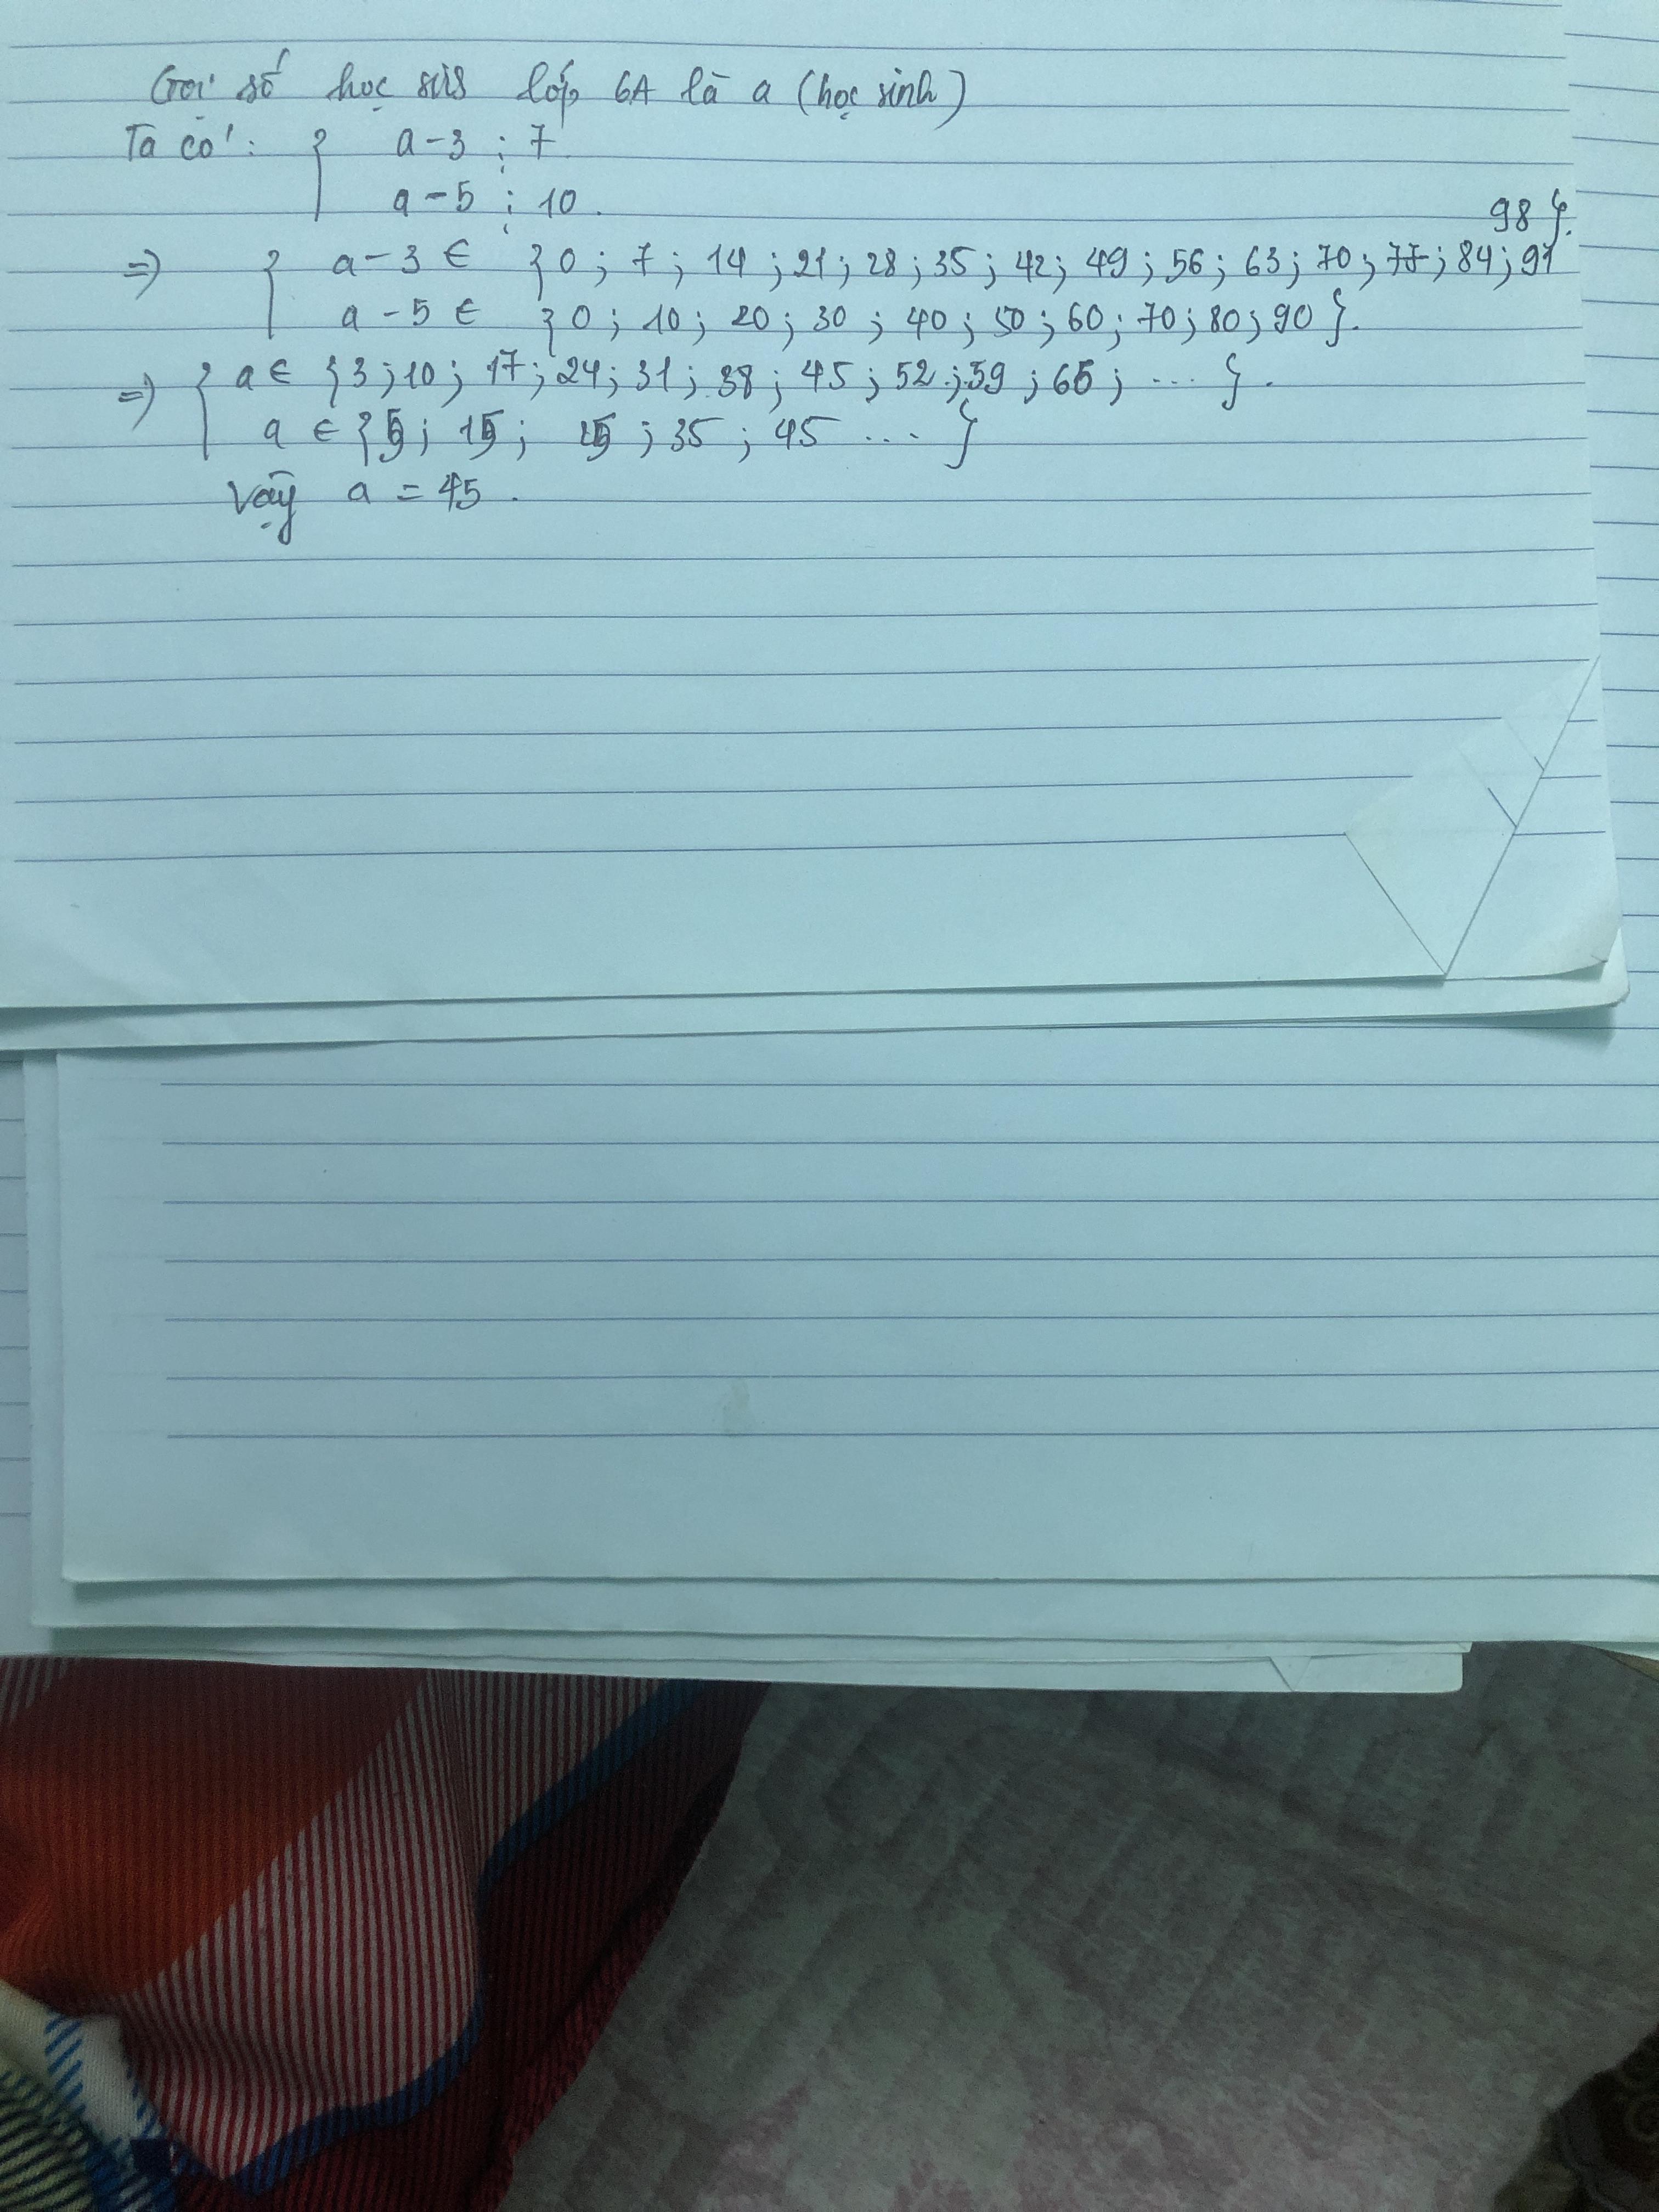 Gọi số học sis lớp 6A là a (học sinh)
Ta có: { a-3 ⋮ 7
a-5 ⋮ 10.
=> { a-3 ∈ {0; 7; 14; 21; 28; 35; 42; 49; 56; 63; 70; 77; 84; 91
98}.
a-5 ∈ {0; 10; 20; 30; 40; 50; 60; 70; 80; 90}.
=> { a ∈ {3; 10; 17; 24; 31; 38; 45; 52; 59; 66; ... }.
a ∈ {5; 15; 25; 35; 45 ... }
Vậy a = 45.